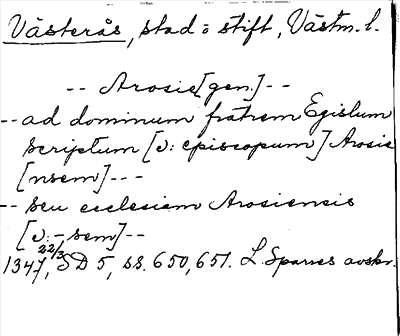 Västerås, stad o stift, Västm. l.
-- Arosie [gen.] --
-- ad dominum fratrem Egislum
scriptum [ɔ: episcopum] Arosie
[nsem] ---
-- seu ecclesiam Arosiensis
[ɔ: -sem] --
22/3
1347, SD 5, ss. 650, 651. L. Sparres avskr.